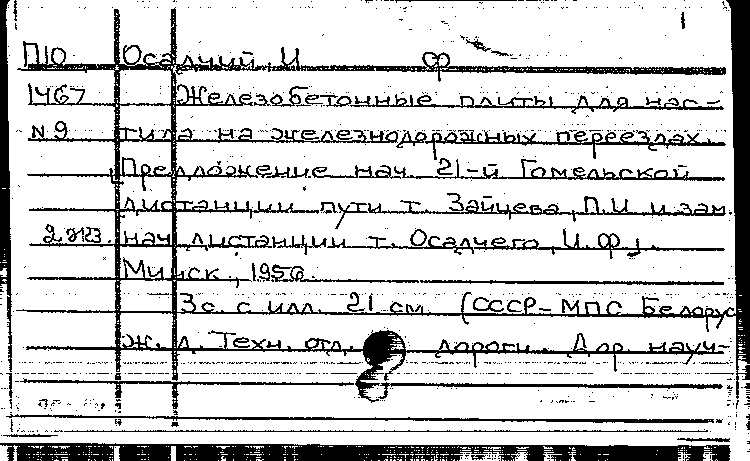 1
П10 Осадчий, И ф
1467 Железобетонные плиты для нас-
N 9 тила на железнодорожных переездах.
Предложение нач. 21-й Гомельской
дистанции пути т. Зайцева, П.И и зам.
2 экз. нач дистанции т. Осадчего, И.Ф.
Минск, 1956.
3 с. с илл. 21 см. (СССР-МПС Белорус
ж. д. Техн. отд. дороги. Дор. науч-